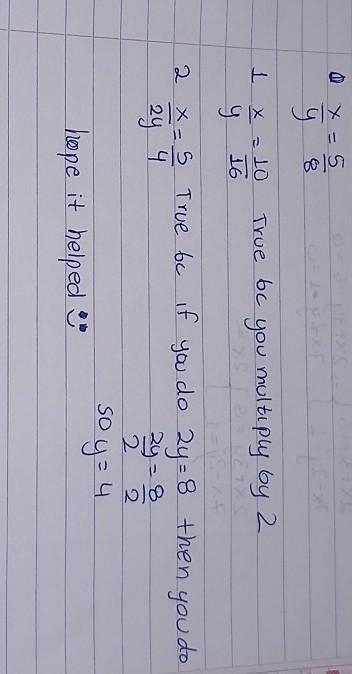 0 x/y = 5/8
1 x/y = 10/16 True bc you multiply by 2
2 x/2y = 5/4 True bc if you do 2y=8 then you do
2y/2 = 8/2
so y=4
hope it helped :)